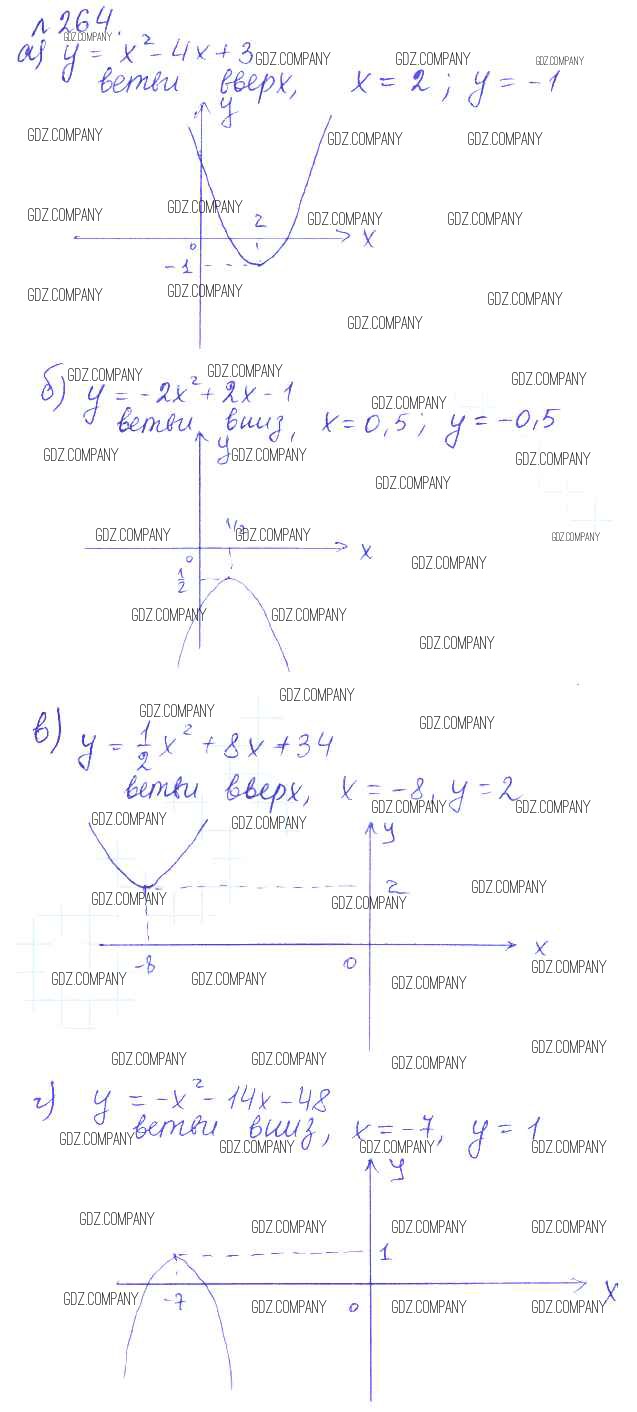 № 264.
а) y = x² - 4x + 3
ветви вверх, x = 2; y = -1
y
2
0
x
-1
б) y = -2x² + 2x - 1
ветви вниз, x = 0,5; y = -0,5
y
1/2
0
x
1/2
в) y = 1/2 x² + 8x + 34
ветви вверх, x = -8, y = 2
y
2
-8
0
x
г) y = -x² - 14x - 48
ветви вниз, x = -7, y = 1
y
1
-7
0
x
GDZ.COMPANY